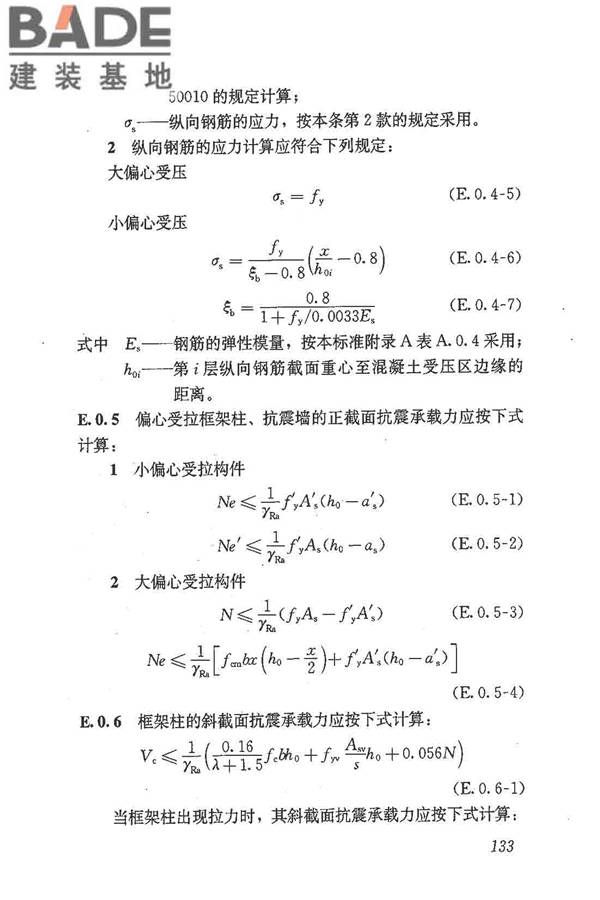 BADE
建装基地
50010的规定计算；
σₛ——纵向钢筋的应力，按本条第2款的规定采用。
2 纵向钢筋的应力计算应符合下列规定：
大偏心受压
σₛ = f_y (E.0.4-5)
小偏心受压
σₛ = f_y/(ξ_b − 0.8) (x/h_{0i} − 0.8) (E.0.4-6)
ξ_b = 0.8/(1 + f_y/0.0033Eₛ) (E.0.4-7)
式中 Eₛ——钢筋的弹性模量，按本标准附录A表A.0.4采用；
h_{0i}——第i层纵向钢筋截面重心至混凝土受压区边缘的
距离。
E.0.5 偏心受拉框架柱、抗震墙的正截面抗震承载力应按下式
计算：
1 小偏心受拉构件
Ne ≤ 1/γ_{Ra} f′_y A′_s (h_0 − a′_s) (E.0.5-1)
Ne′ ≤ 1/γ_{Ra} f′_y A_s (h_0 − a_s) (E.0.5-2)
2 大偏心受拉构件
N ≤ 1/γ_{Ra} (f_y A_s − f′_y A′_s) (E.0.5-3)
Ne ≤ 1/γ_{Ra} [f_{cm} bx (h_0 − x/2) + f′_y A′_s (h_0 − a′_s)]
(E.0.5-4)
E.0.6 框架柱的斜截面抗震承载力应按下式计算：
V_c ≤ 1/γ_{Ra} (0.16/(λ + 1.5) f_c bh_0 + f_{yv} A_{sv}/s h_0 + 0.056N)
(E.0.6-1)
当框架柱出现拉力时，其斜截面抗震承载力应按下式计算：
133